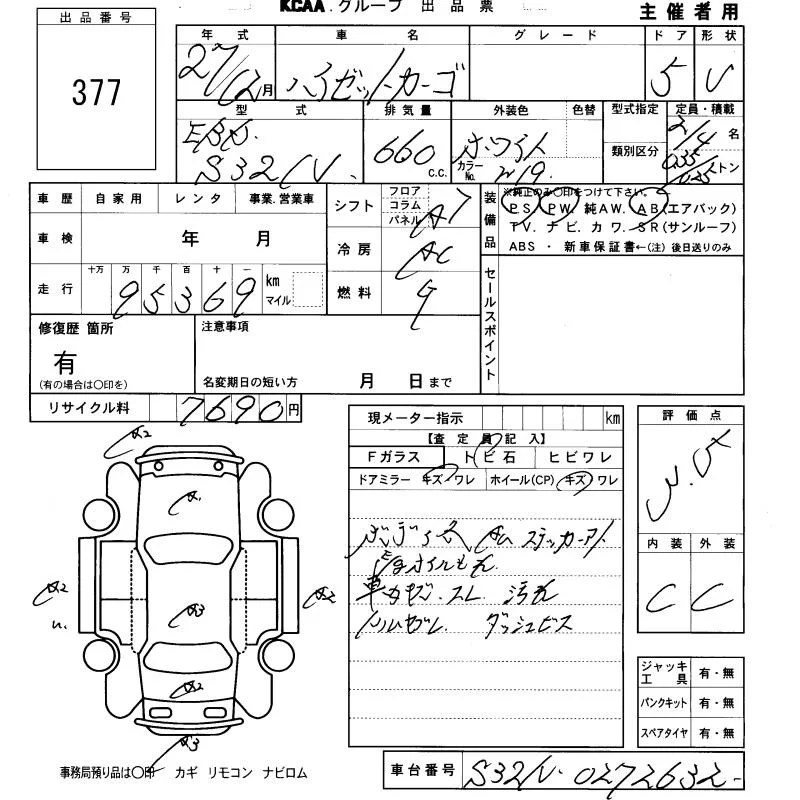 KCAA.グループ 出品票
主催者用
出品番号
377
年式 車名 グレード ドア 形状
27/12月 ハイゼットカーゴ 5 V
型式 排気量 外装色 色替 型式指定 定員・積載
EBD.
S321V. 660 c.c. ホワイト カラーNo. W19. 類別区分 2/4名
0.35/0.25トン
車歴 自家用 レンタ 事業.営業車
シフト フロア コラム パネル AT
装備品 ※純正のみ○印をつけて下さい。
PS. PW. 純AW. AB(エアバック)
TV. ナビ. カワ. SR(サンルーフ)
ABS ・ 新車保証書←(注) 後日送りのみ
車検 年 月
冷房 AC
走行 十万 万 千 百 十 一 km マイル
95369
燃料 G
セールスポイント
修復歴 箇所
有
(有の場合は○印を)
注意事項
名変期日の短い方 月 日まで
リサイクル料 7690円
現メーター指示 km
【査定員記入】
Fガラス トビ石 ヒビワレ
ドアミラー キズ ワレ ホイール(CP) キズ ワレ
評価点
内装 外装
C C
A2
A1
A2
A3
A2
A2
A3
ステッカーアト
オイルモレ
車カセザ.スレ. 汚れ
ダッシュビス
ジャッキ工具 有・無
パンクキット 有・無
スペアタイヤ 有・無
事務局預り品は○印 カギ リモコン ナビロム
車台番号 S321V-0272632-